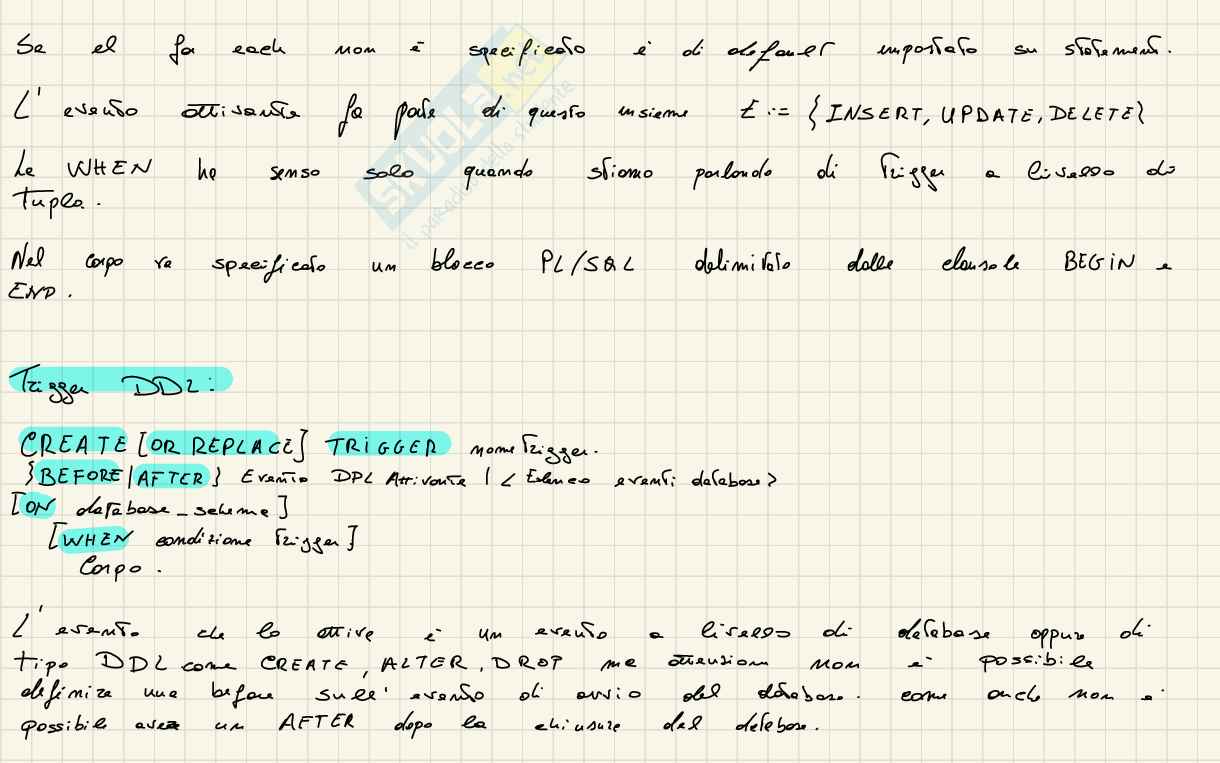 Se el for each non è specificato è di default impostato su statement.
L'evento attivante fa parte di questo insieme E := {INSERT, UPDATE, DELETE}
Le WHEN ha senso solo quando stiamo parlando di Trigger a livello di
Tupla.
Nel corpo va specificato un blocco PL/SQL delimitato dalle clausole BEGIN e
END.
Trigger DDL:
CREATE [OR REPLACE] TRIGGER nomeTrigger.
{BEFORE|AFTER} Evento DDL Attivante | < Elenco eventi database>
[ON database_schema]
[WHEN condizione Trigger]
Corpo.
L'evento che lo attiva è un evento a livello di database oppure di
tipo DDL come CREATE, ALTER, DROP ma attenzione non è possibile
definire una before sull'evento di avvio del database. come anche non è
possibile avere un AFTER dopo la chiusura del database.
SKUOLA.net
il paradiso dello studente